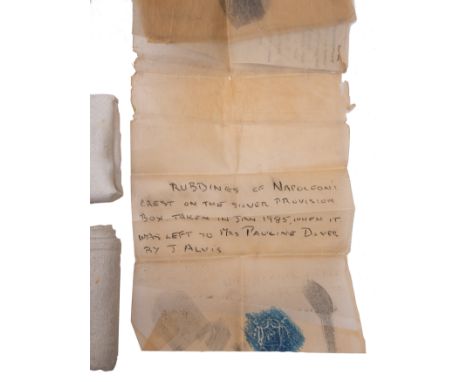 RUBDINGS OF NAPOLEON'S
CREST ON THE SILVER PROVISION
BOX TAKEN IN JAN 1985, WHEN IT
WAS LEFT TO MRS PAULINE DIVER
BY J ALVIS